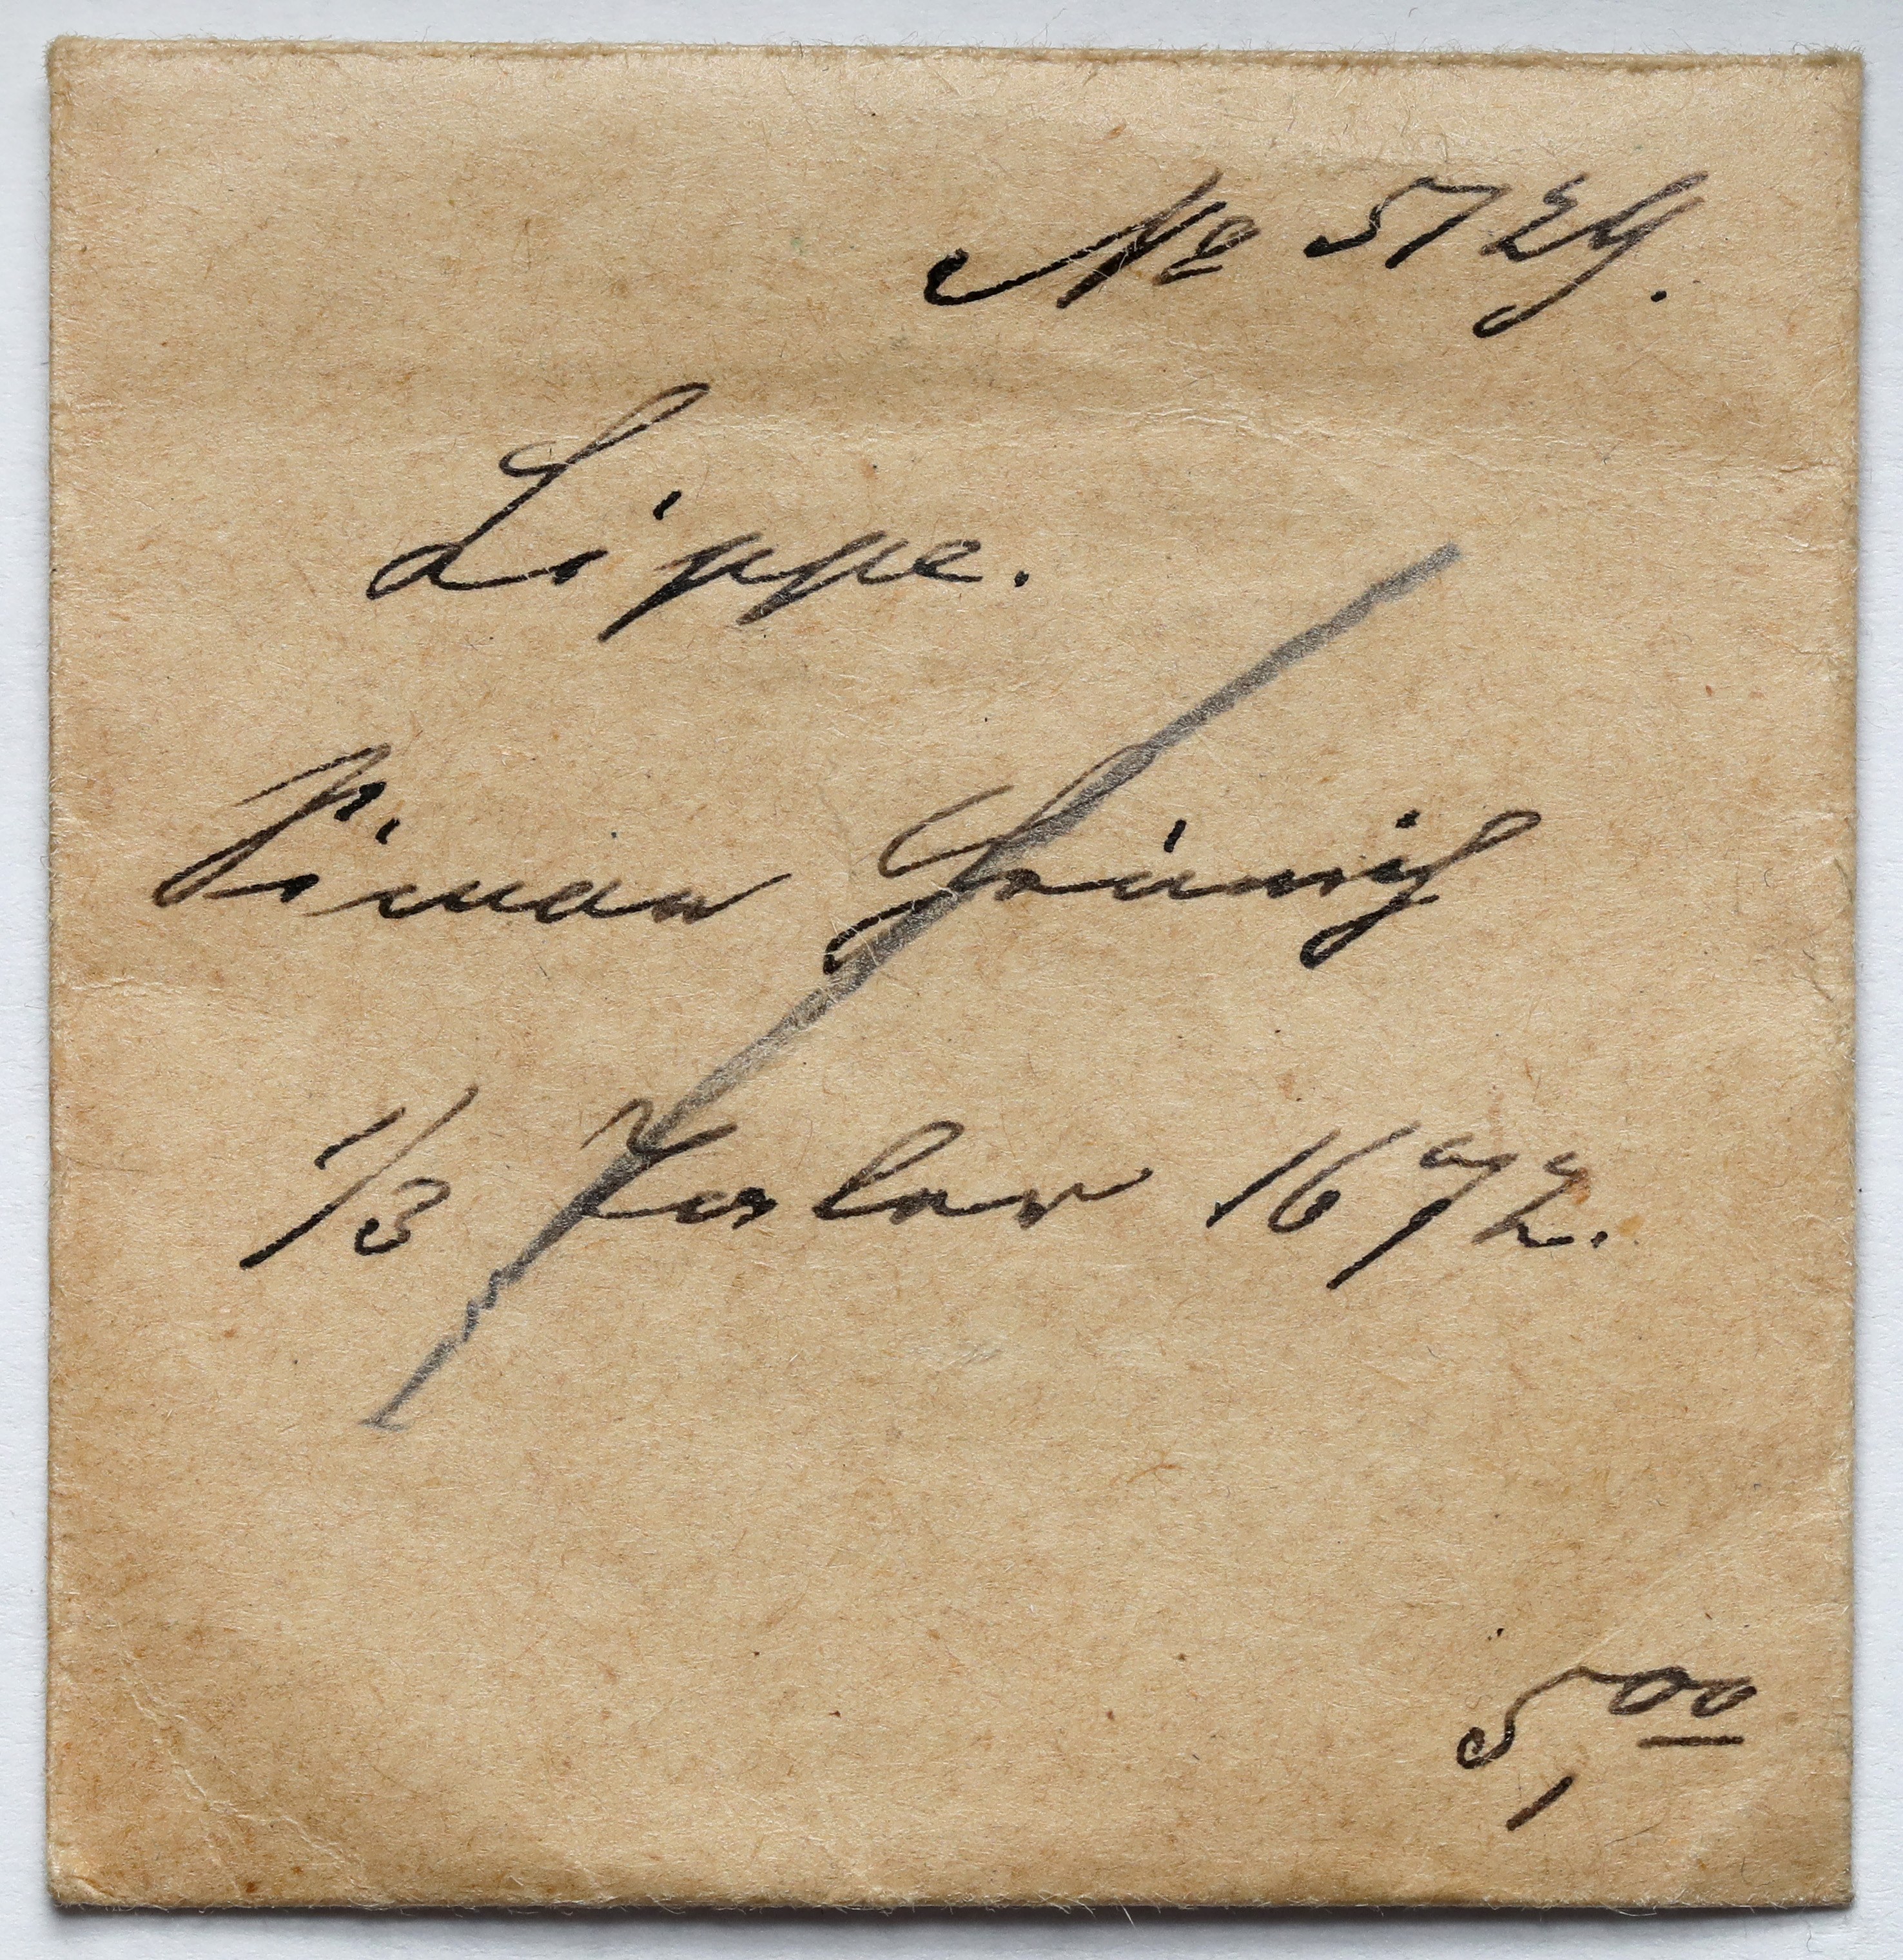 No 5724.
Lippe.
Simon Heinrich
1/3 Taler 1672.
5,00